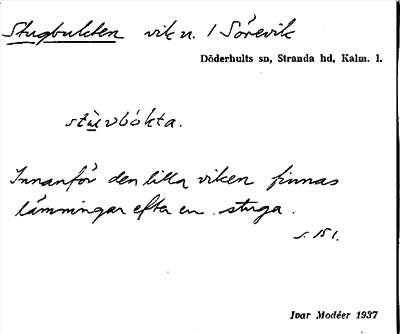 Stugbukten vik n. / Sörevik
Döderhults sn, Stranda hd, Kalm. l.
stùvbókta.
Innanför den lilla viken finnas
lämningar efter en stuga.
s. 151.
Ivar Modéer 1937